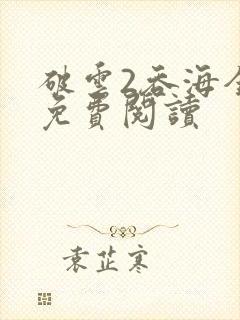 破雲2吞海全
免費閱讀
袁芷寒